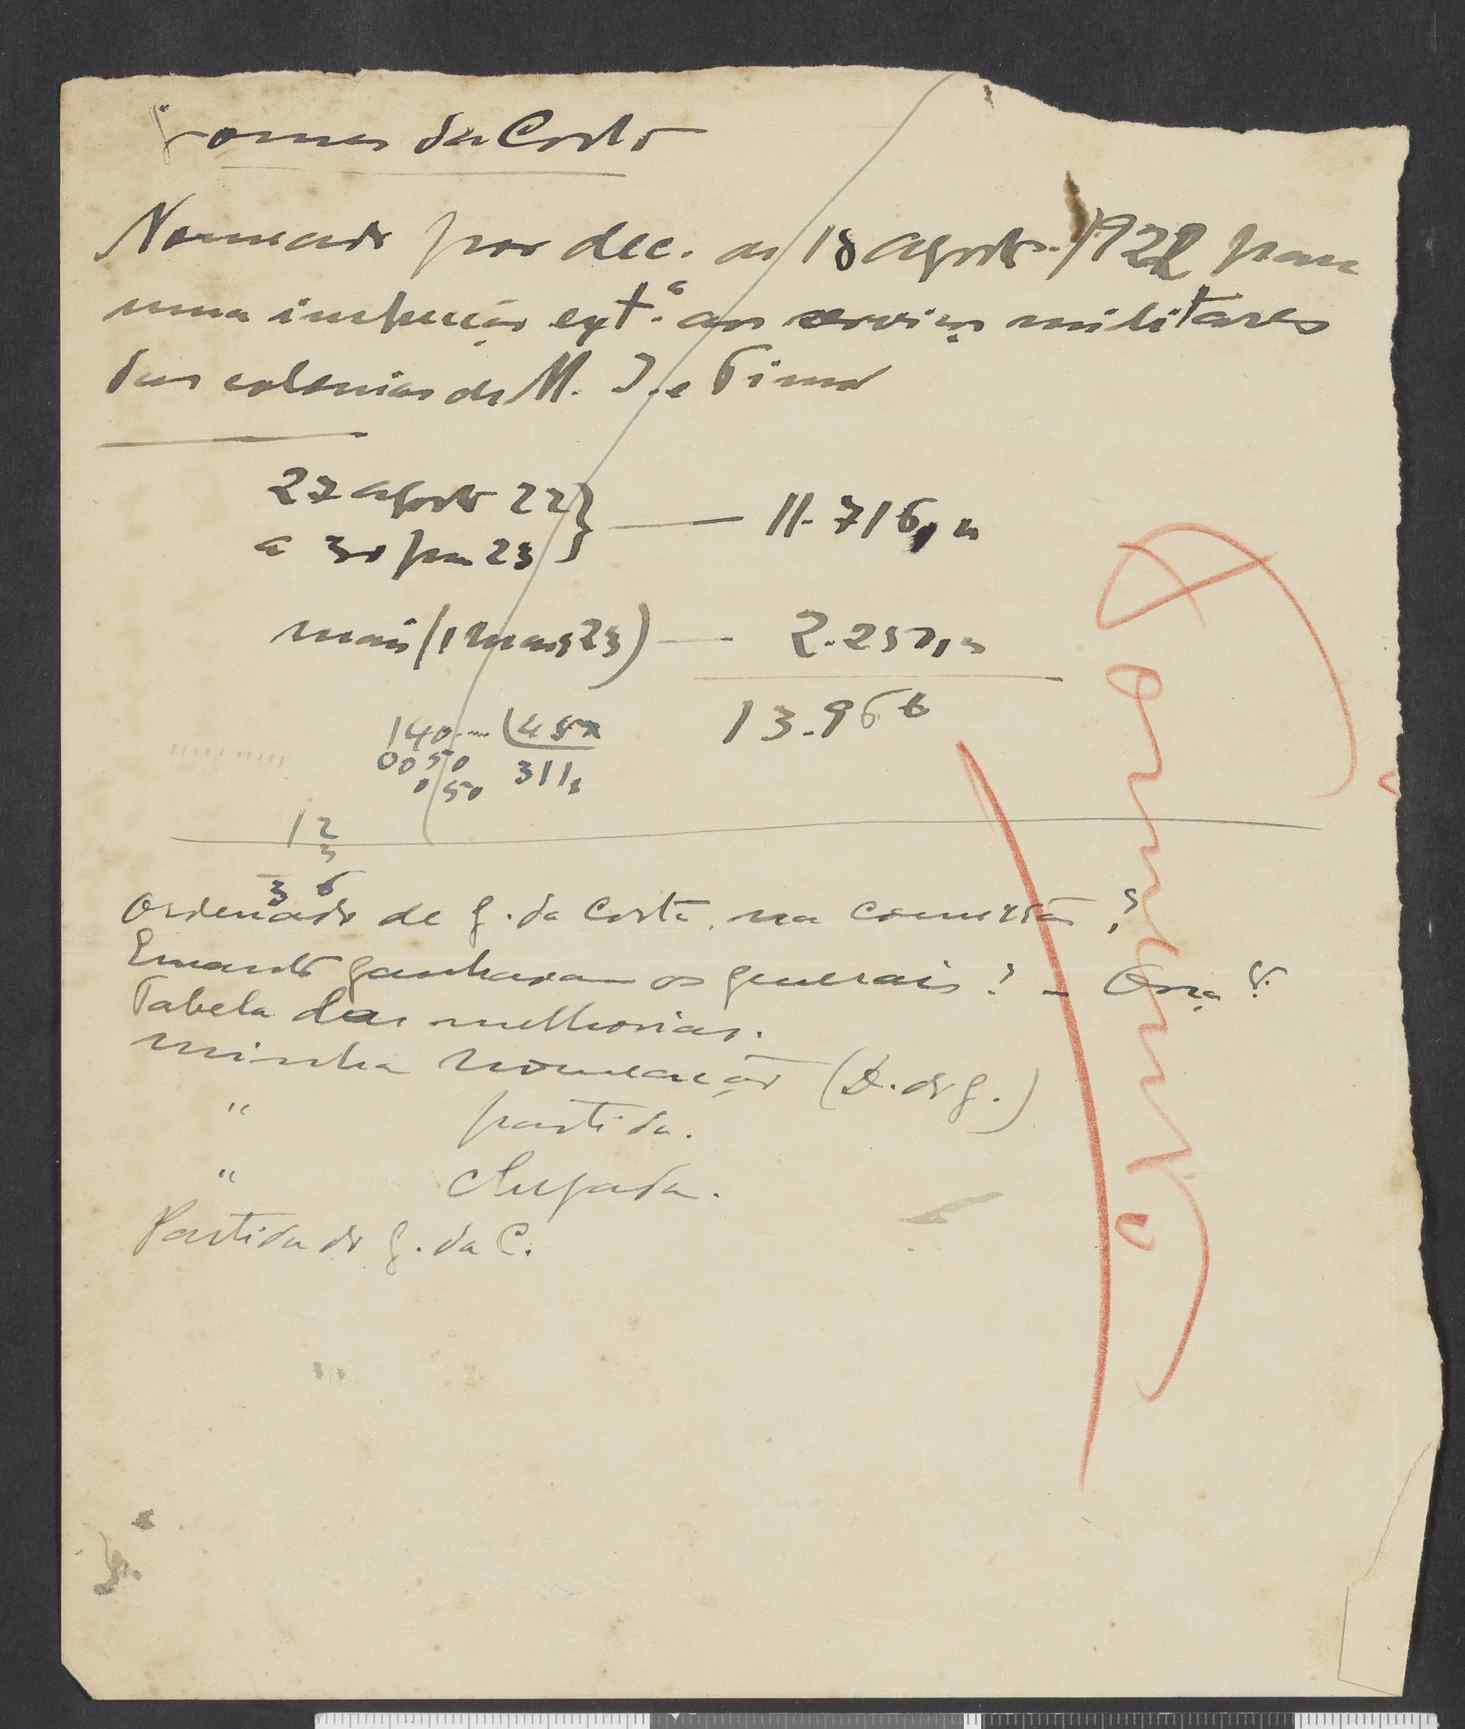 Gomes da Costa
Nomeado por dec. de 18 agosto 1922 para
uma inspecção extª aos serviços militares
das colonias de M. I. e Timor
27 agosto 22
a 30 jan 23 } — 11.716,
mais (1 março 23) — 2.250,
13.966
140 450
0050 311,
050
12
3
36
Ordenado de G. da Costa, na comissão?
Quanto ganhavam os generais? —
Tabela das melhorias.
minha nomeação (D. do G.)
" partida.
" chegada.
Partida de G. da C.
Dormente